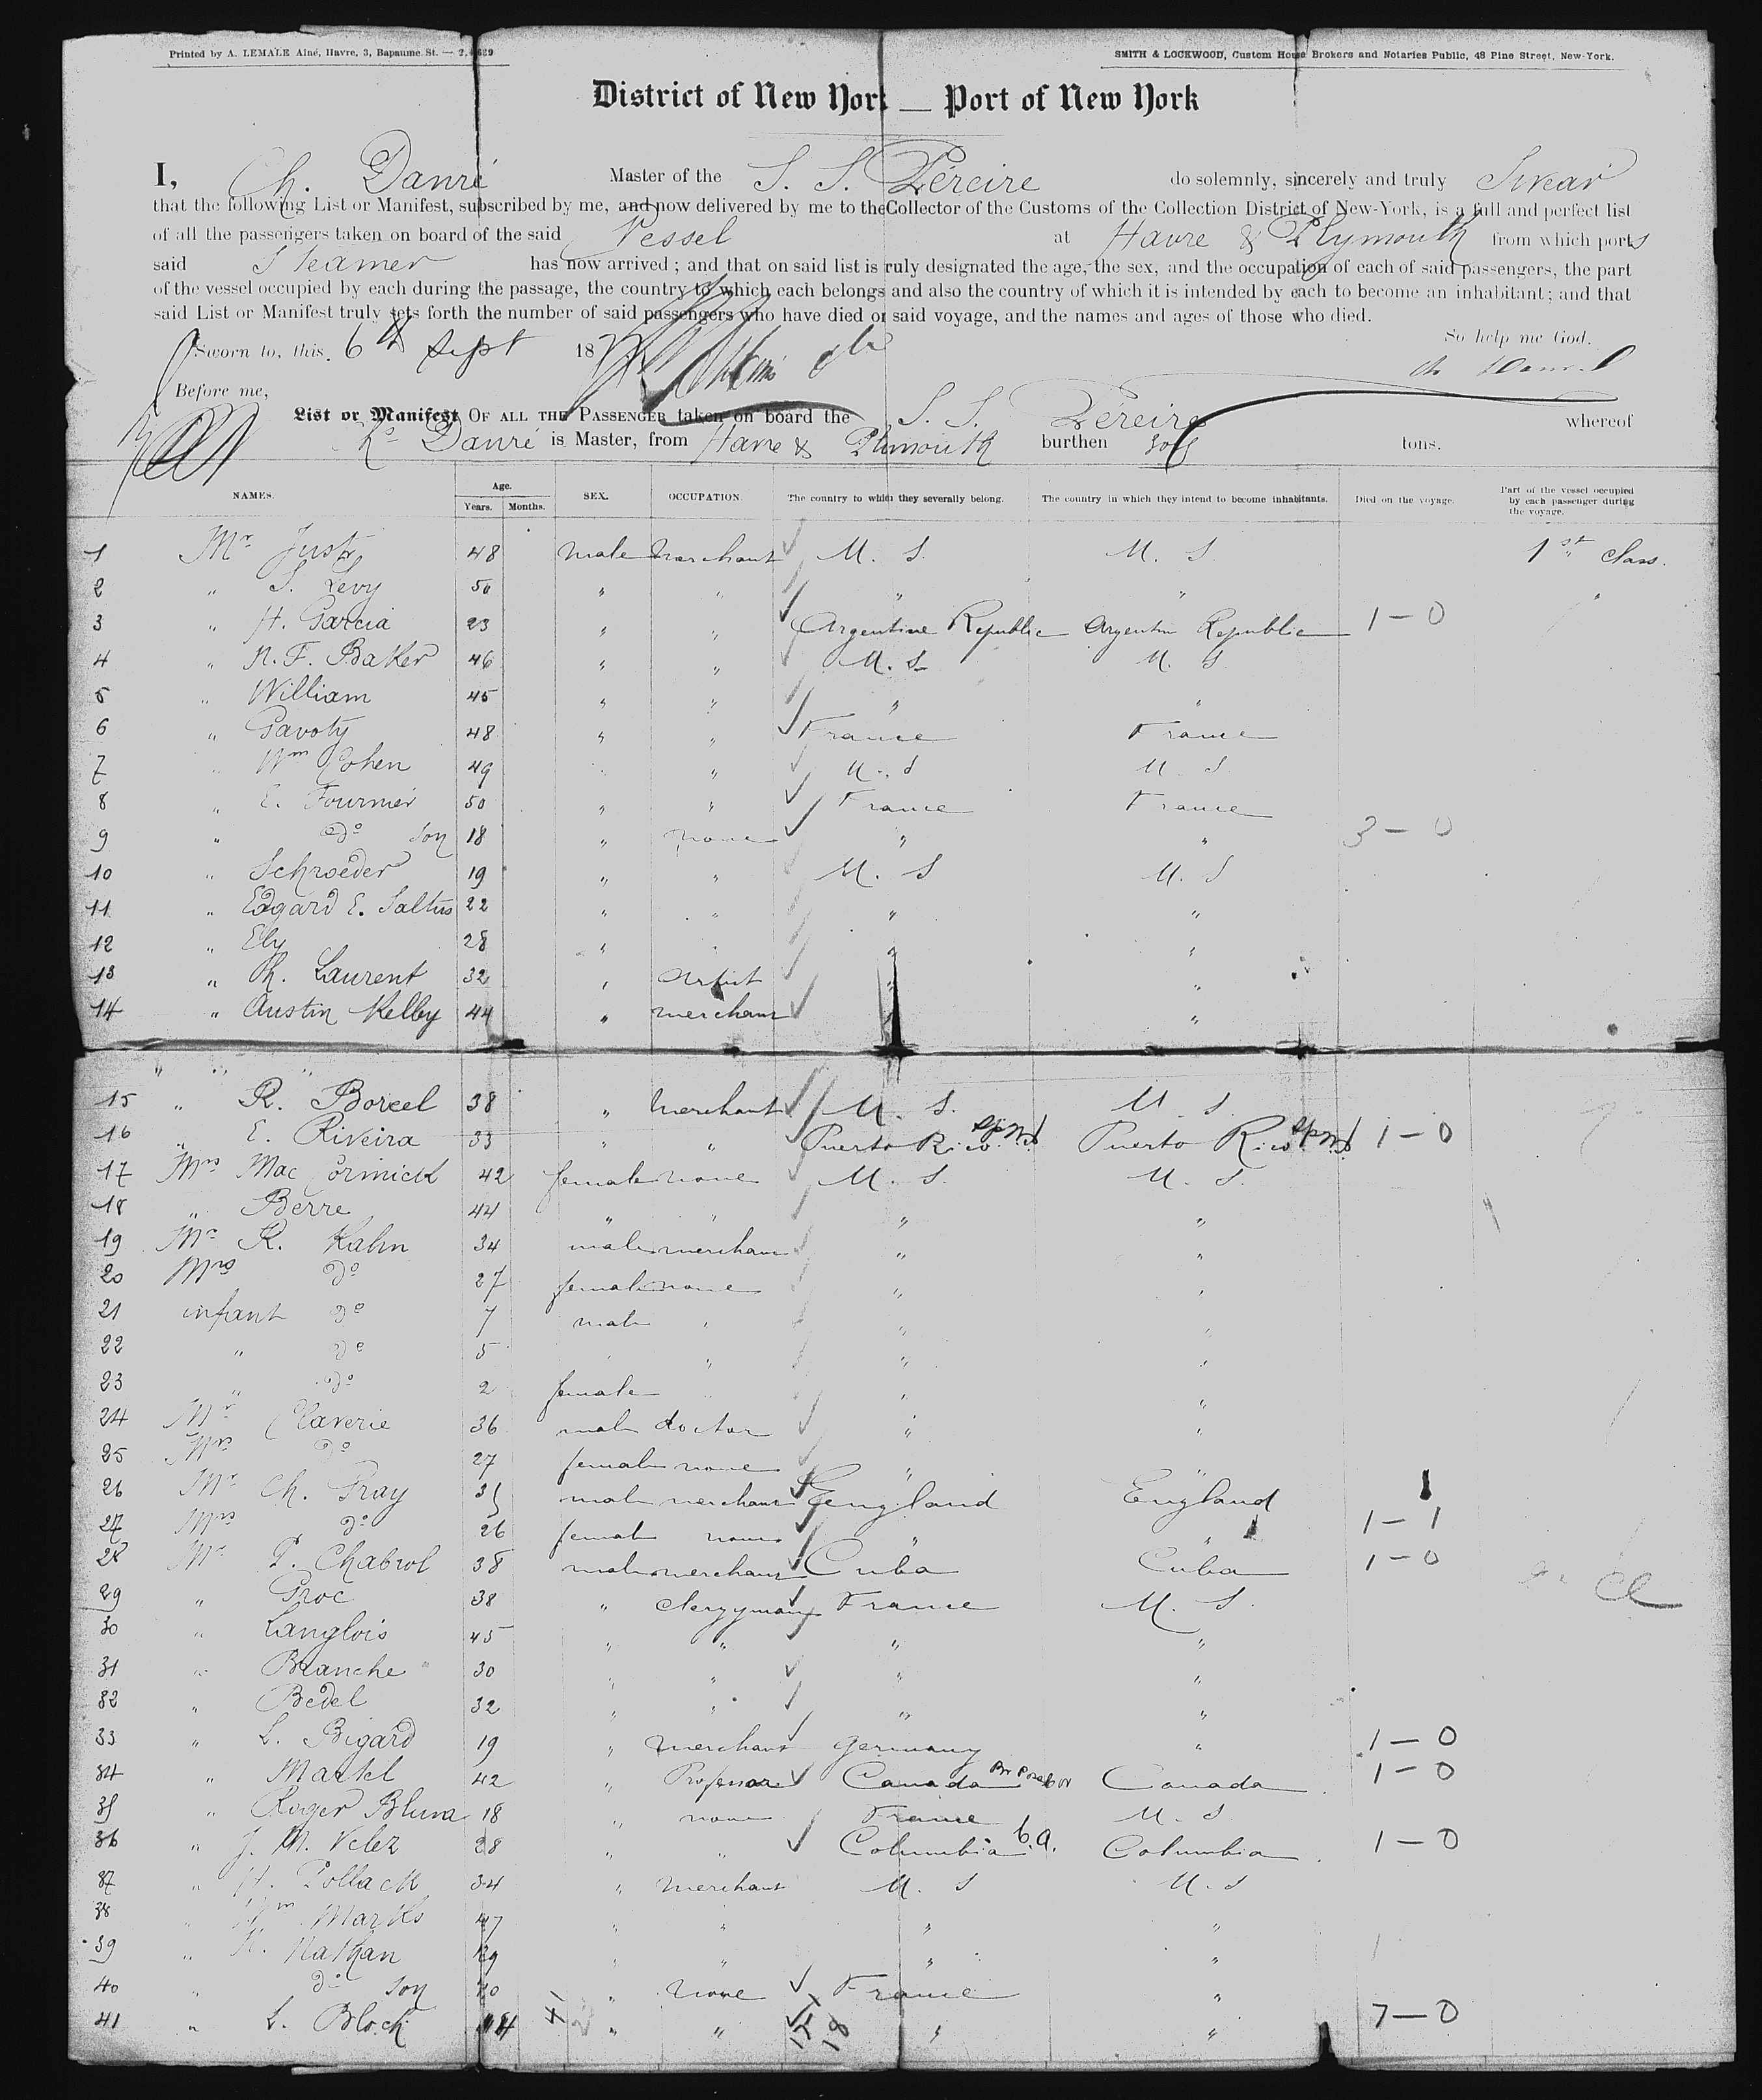 Printed by A. LEMALE Aîné, Havre, 3, Bapaume St. —
SMITH & LOCKWOOD, Custom House Brokers and Notaries Public, 48 Pine Street, New-York.
District of New York — Port of New York
I, Ch. Danré Master of the S. S. Péreire do solemnly, sincerely and truly Swear
that the following List or Manifest, subscribed by me, and now delivered by me to the Collector of the Customs of the Collection District of New-York, is a full and perfect list
of all the passengers taken on board of the said Vessel at Havre & Plymouth from which ports
said Steamer has now arrived; and that on said list is truly designated the age, the sex, and the occupation of each of said passengers, the part
of the vessel occupied by each during the passage, the country to which each belongs and also the country of which it is intended by each to become an inhabitant; and that
said List or Manifest truly sets forth the number of said passengers who have died on said voyage, and the names and ages of those who died.
So help me God.
Sworn to, this 6th Sept 18
Before me,
List or Manifest OF ALL THE PASSENGER taken on board the S. S. Péreire whereof
Danré is Master, from Havre & Plimouth burthen tons.
NAMES. Age. Years. Months. SEX. OCCUPATION. The country to which they severally belong. The country in which they intend to become inhabitants. Died on the voyage. Part of the vessel occupied by each passenger during the voyage.
1 Mr Just 48 male merchant U. S. U. S 1st class.
2 " S. Levy 50 " " " "
3 " H. Garcia 23 " " Argentine Republic Argentin Republic 1-0
4 " N. F. Baker 46 " " U. S U. S
5 " William 45 " " " "
6 " Gavoty 48 " " France France
7 " Wm Cohen 49 " " U. S U. S
8 " E. Fournier 50 " " France France
9 " do son 18 " none " " 3-0
10 " Schroeder 19 " " U. S U. S
11 " Edgard E. Saltus 22 " " " "
12 " Ely 28 " " " "
13 " Th. Laurent 32 " artist " "
14 " Austin Kelley 44 " merchant " "
15 " R. Boreel 38 " merchant U. S. U. S.
16 " E. Riveira 33 " " Puerto Rico Puerto Rico 1-0
17 Mrs Mac Cormick 42 female none U. S. U. S.
18 " Berre 44 " " " "
19 Mr R. Kahn 34 male merchant " "
20 Mrs do 27 female none " "
21 infant do 7 male " " "
22 " do 5 " " " "
23 " do 2 female " " "
24 Mr Claverie 36 male doctor " "
25 Mrs do 27 female none " "
26 Mr Ch. Gray 35 male merchant England England
27 Mrs do 26 female none " " 1-1
28 Mr P. Chabrol 38 male merchant Cuba Cuba 1-0
29 " Proc 38 " clergyman France U. S.
30 " Langlois 45 " " " "
31 " Branche 30 " " " "
32 " Bedel 32 " " " "
33 " L. Bigard 19 " merchant Germany " 1-0
34 " Martel 42 " Professor Canada Canada 1-0
35 " Roger Blum 18 " none France U. S.
36 " J. M. Velez 28 " " Columbia Columbia 1-0
37 " H. Pollack 34 " merchant U. S U. S
38 " Wm Marks 47 " " " "
39 " N. Nathan " " " "
40 " do son " none France "
41 " L. Bloch " " " " 7-0